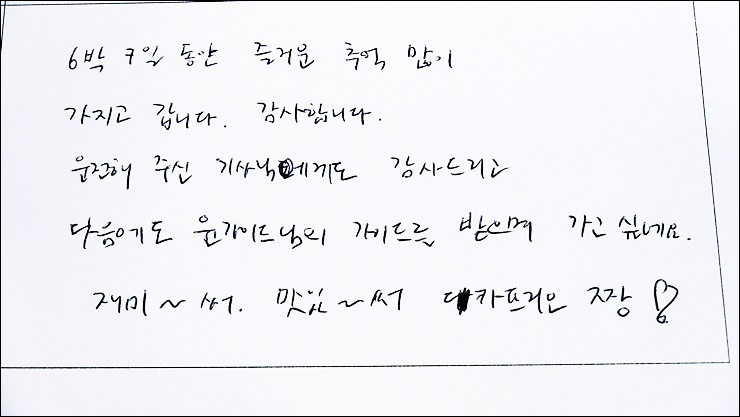 6박 7일 동안 즐거운 추억 많이
가지고 갑니다. 감사합니다.
운전해 주신 기사님에게도 감사드리고
다음에도 윤가이드님의 가이드를 받으며 가고 싶네요.
재미~써. 맛있~써 카프리오 짱